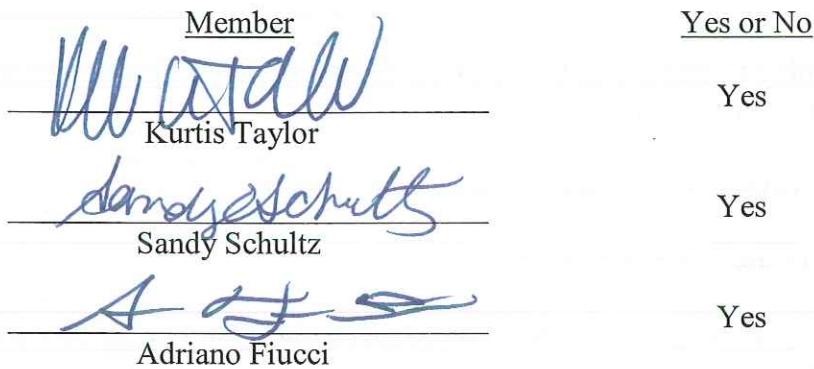 Member Yes or No
Yes
Kurtis Taylor
Sandy Schultz Yes
Sandy Schultz
Yes
Adriano Fiucci